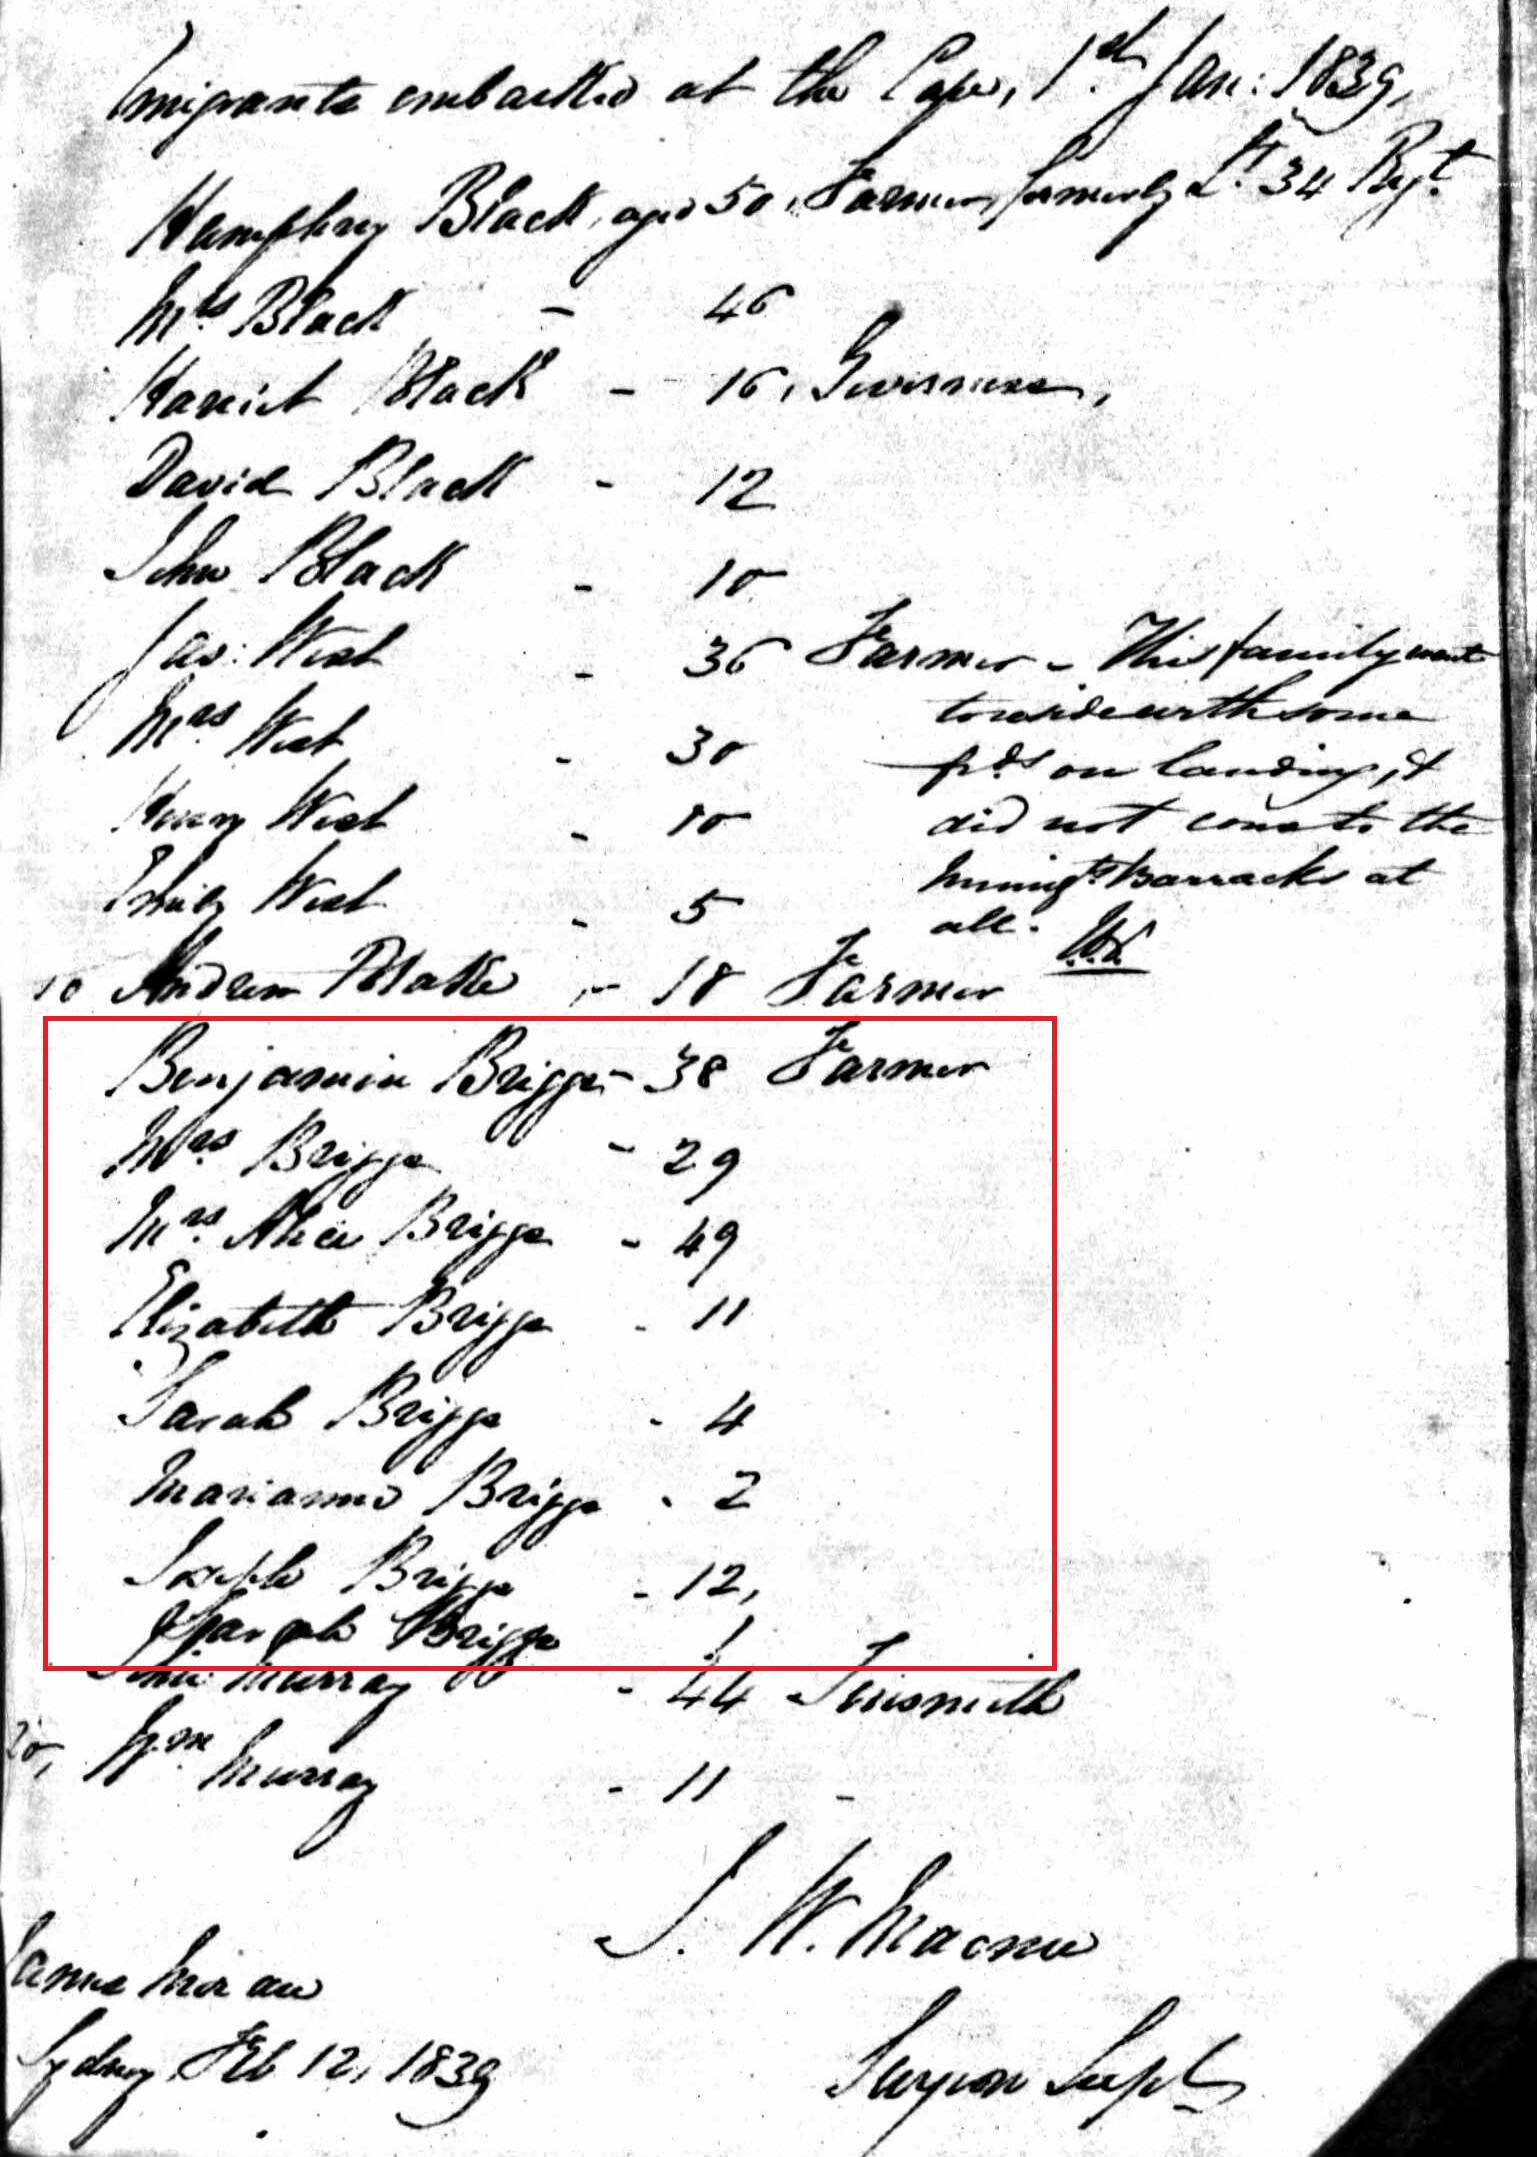 Emigrants embarked at the Cape, 1st Jan: 1839,
Humphrey Black, aged 50, Farmer, formerly Lt 34 Regt
Mrs Black - 46
Hariet Black - 16, Governess,
David Black - 12
John Black - 10
Jas: West - 36 Farmer - This family went
to reside with some
frds on landing, &
did not come to the
Immigt Barracks at
all.
Mrs West - 30
Henry West - 10
Emily West - 5
10 Andrew Blake - 18 Farmer
Benjamin Briggs - 38 Farmer
Mrs Briggs - 29
Mrs Alice Briggs - 49
Elizabeth Briggs - 11
Sarah Briggs - 4
Marianne Briggs - 2
Joseph Briggs - 12,
Briggs 1
Murray - 44 Tinsmith
20, Wm Murray - 11 -
J. W. Macnee
Surgeon Supt
Sydney Feb 12, 1839